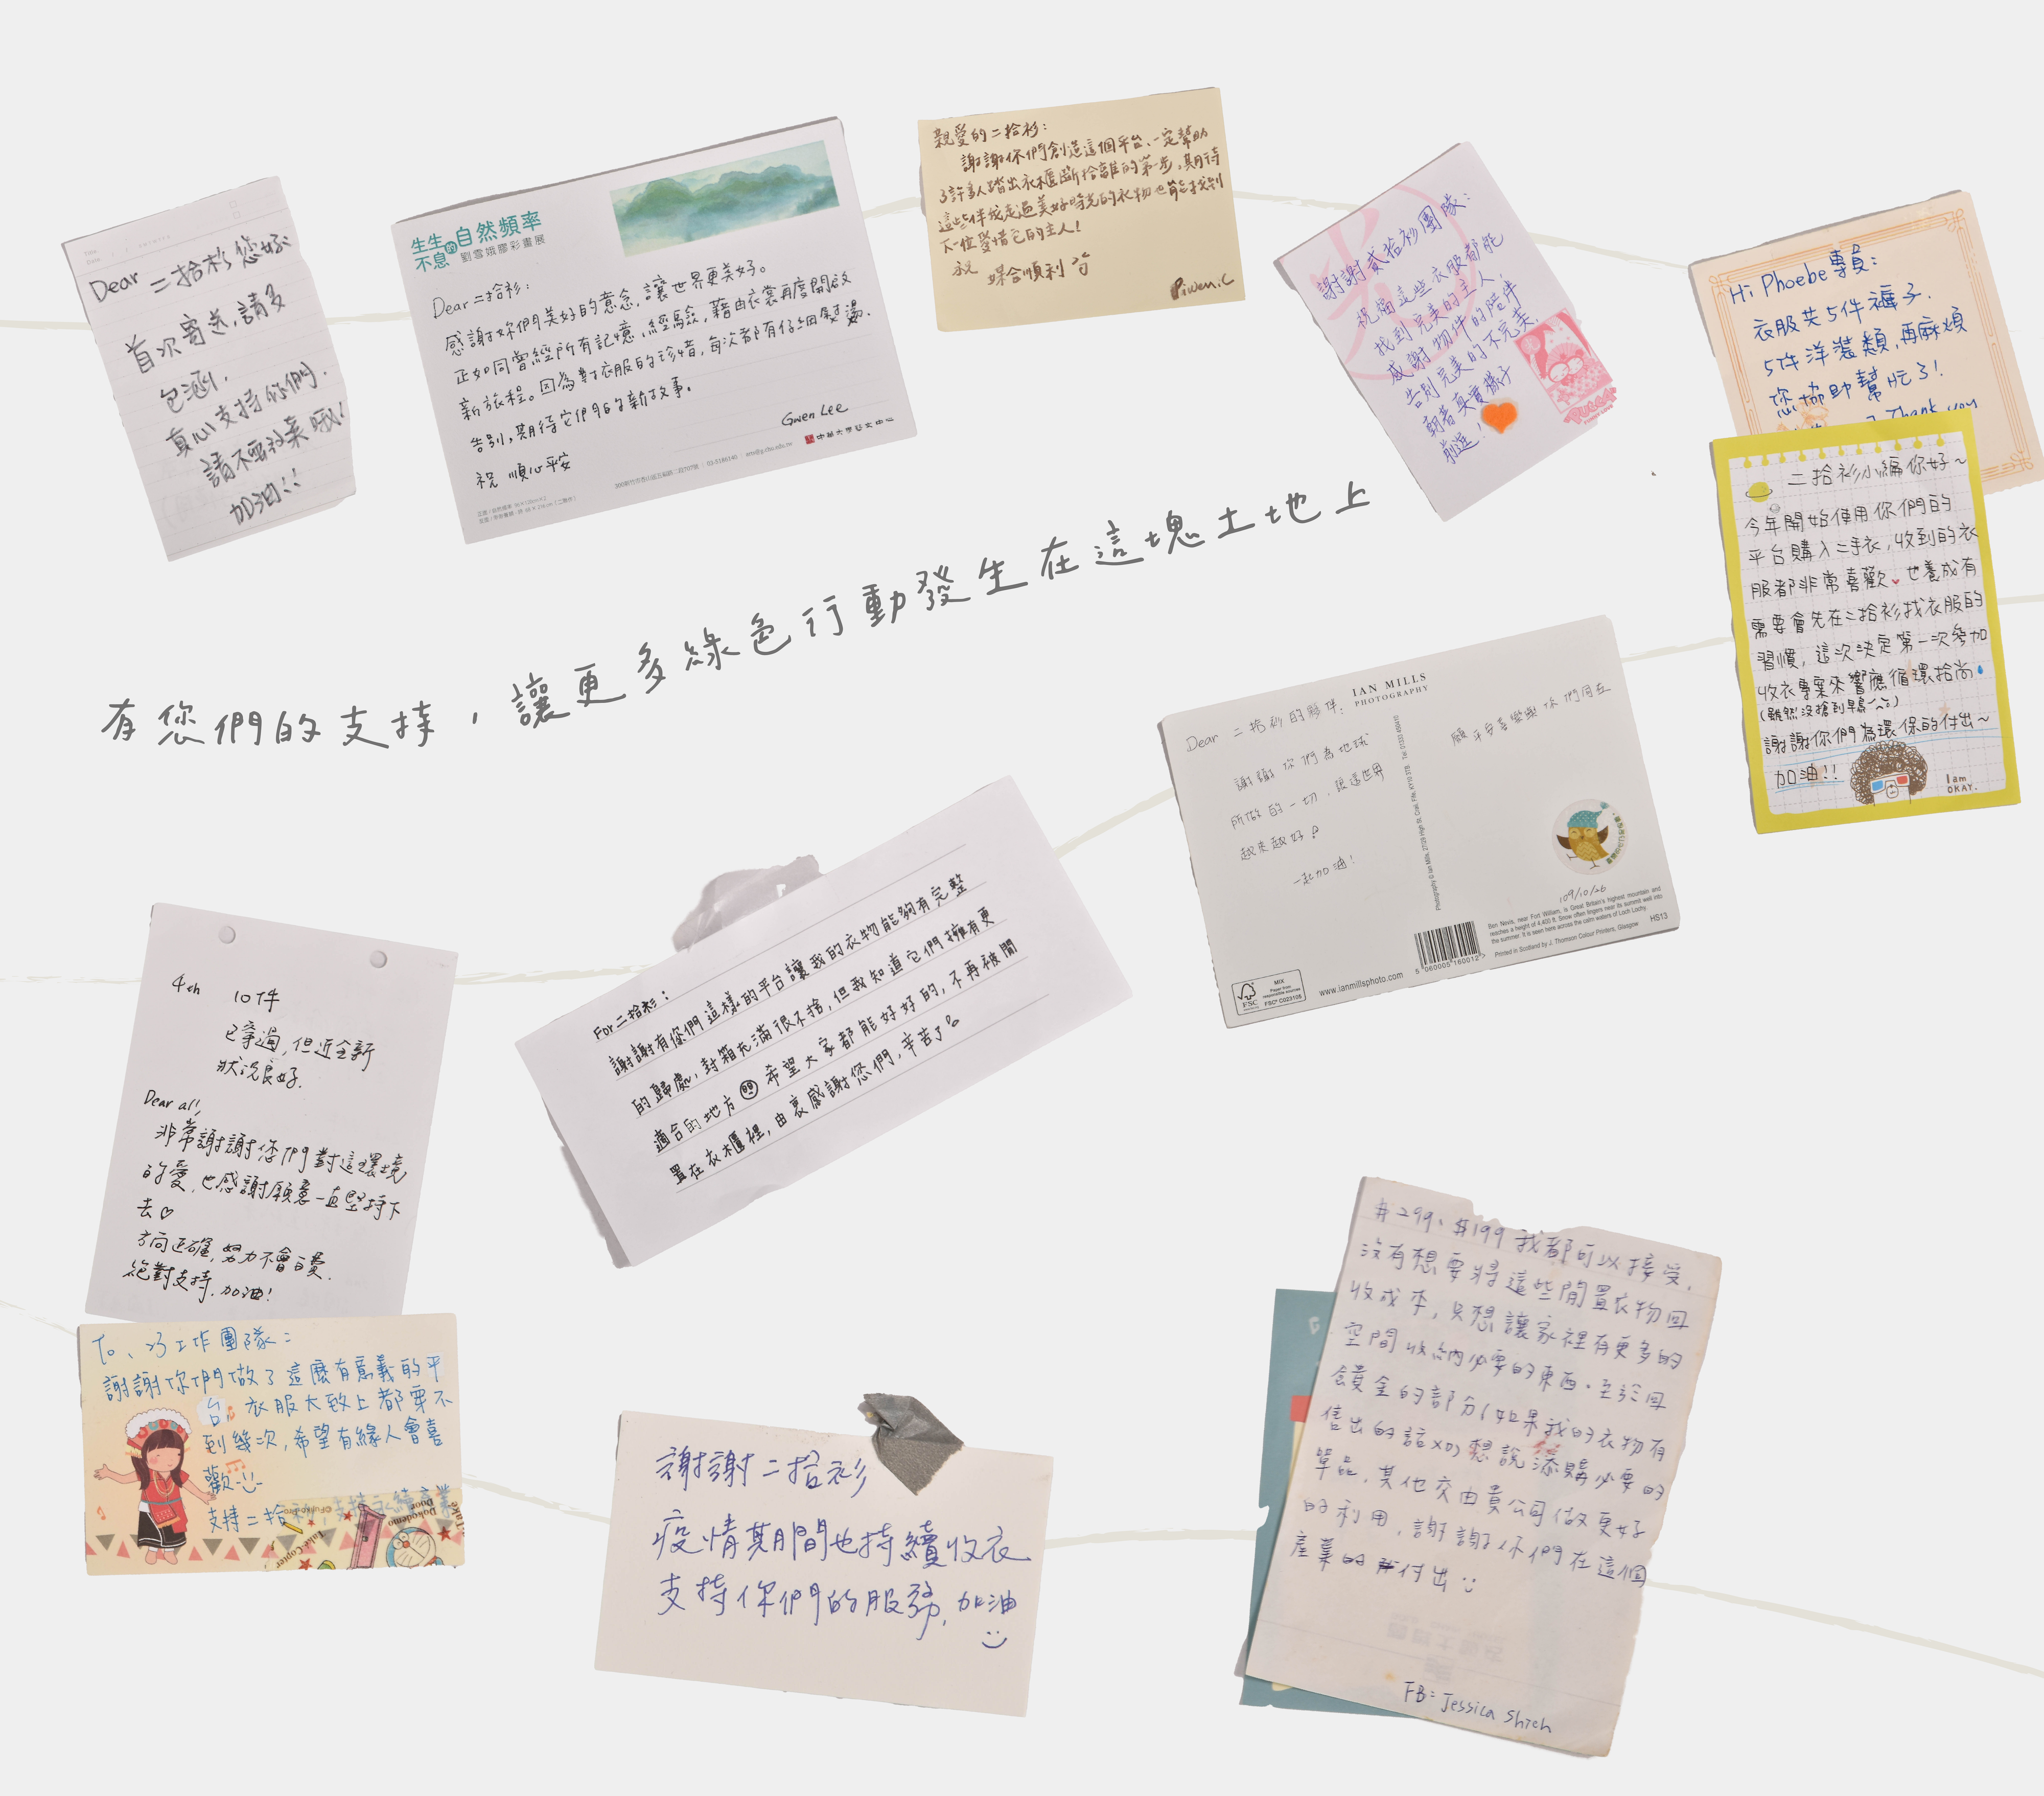 Dear 二拾衫您好:
首次寄送,請多
包涵.
真心支持你們.
請不要放棄哦!
加油!!
生生不息的自然頻率
劉雪娥膠彩畫展
Dear 二拾衫:
感謝妳們美好的意念,讓世界更美好。
正如同曾經所有記憶,經驗,藉由衣裳再度開啟
新旅程。因為對衣服的珍惜,每次都有仔細熨燙.
告別,期待它們的新故事。
祝 順心平安
Gwen Lee
中華大學藝文中心
親愛的二拾衫:
謝謝你們創造這個平台、一定幫助
了許多人踏出衣櫃斷捨離的第一步,期待
這些伴我走過美好時光的衣物也能找到
下一位愛惜它的主人!
祝 媒合順利
Piwen.C
謝謝貳拾衫團隊:
祝福這些衣服都能
找到完美的主人,
感謝物件的陪伴
告別完美的不完美,
朝著真實樣子
前進!
PUCCA
Hi Phoebe專員:
衣服共5件褲子.
5件洋裝類,再麻煩
您協助幫忙了!
Thank you
二拾衫小編你好~
今年開始使用你們的
平台購入二手衣,收到的衣
服都非常喜歡 也養成有
需要會先在二拾衫找衣服的
習慣,這次決定第一次參加
收衣專案來響應循環拾尚
(雖然沒搶到早鳥)
謝謝你們為環保的付出~
加油!!
I am
OKAY.
有您們的支持,讓更多綠色行動發生在這塊土地上
IAN MILLS
PHOTOGRAPHY
Dear 二拾衫的夥伴:
謝謝你們為地球
所做的一切,讓這世界
越來越好!
一起加油!
願平安喜樂與你們同在
109/10/26
Ben Nevis, near Fort William, is Great Britain's highest mountain and
reaches a height of 4,400 ft. Snow often lingers near its summit well into
the summer. It is seen here across the calm waters of Loch Lochy.
Printed in Scotland by J. Thomson Colour Printers, Glasgow
HS13
5 060005 160012
www.ianmillsphoto.com
FSC
MIX
Paper from
responsible sources
FSC® C023105
For 二拾衫:
謝謝有你們這樣的平台讓我的衣物能夠有完整
的歸處,封箱充滿很不捨,但我知道它們擁有更
適合的地方 希望大家都能好好的,不再被閒
置在衣櫃裡,由衷感謝您們,辛苦了。
4th 10件
已穿過,但近全新
狀況良好.
Dear all,
非常謝謝您們對這環境
的愛,也感謝願意一直堅持下
去♡
方向正確,努力不會白費.
絕對支持.加油!
To、23工作團隊:
謝謝你們做了這麼有意義的平
台,衣服大致上都穿不
到幾次,希望有緣人會喜
歡
支持二拾衫,支持永續產業
謝謝二拾衫
疫情期間也持續收衣
支持你們的服務,加油
#299、#199 我都可以接受.
沒有想要將這些閒置衣物回
收成本,只想讓家裡有更多的
空間收納必要的東西.至於回
饋金的部分(如果我的衣物有
售出的話XD)想說添購必要的
單品,其他交由貴公司做更好
的利用,謝謝你們在這個
產業的付出
FB=Jessica Shieh